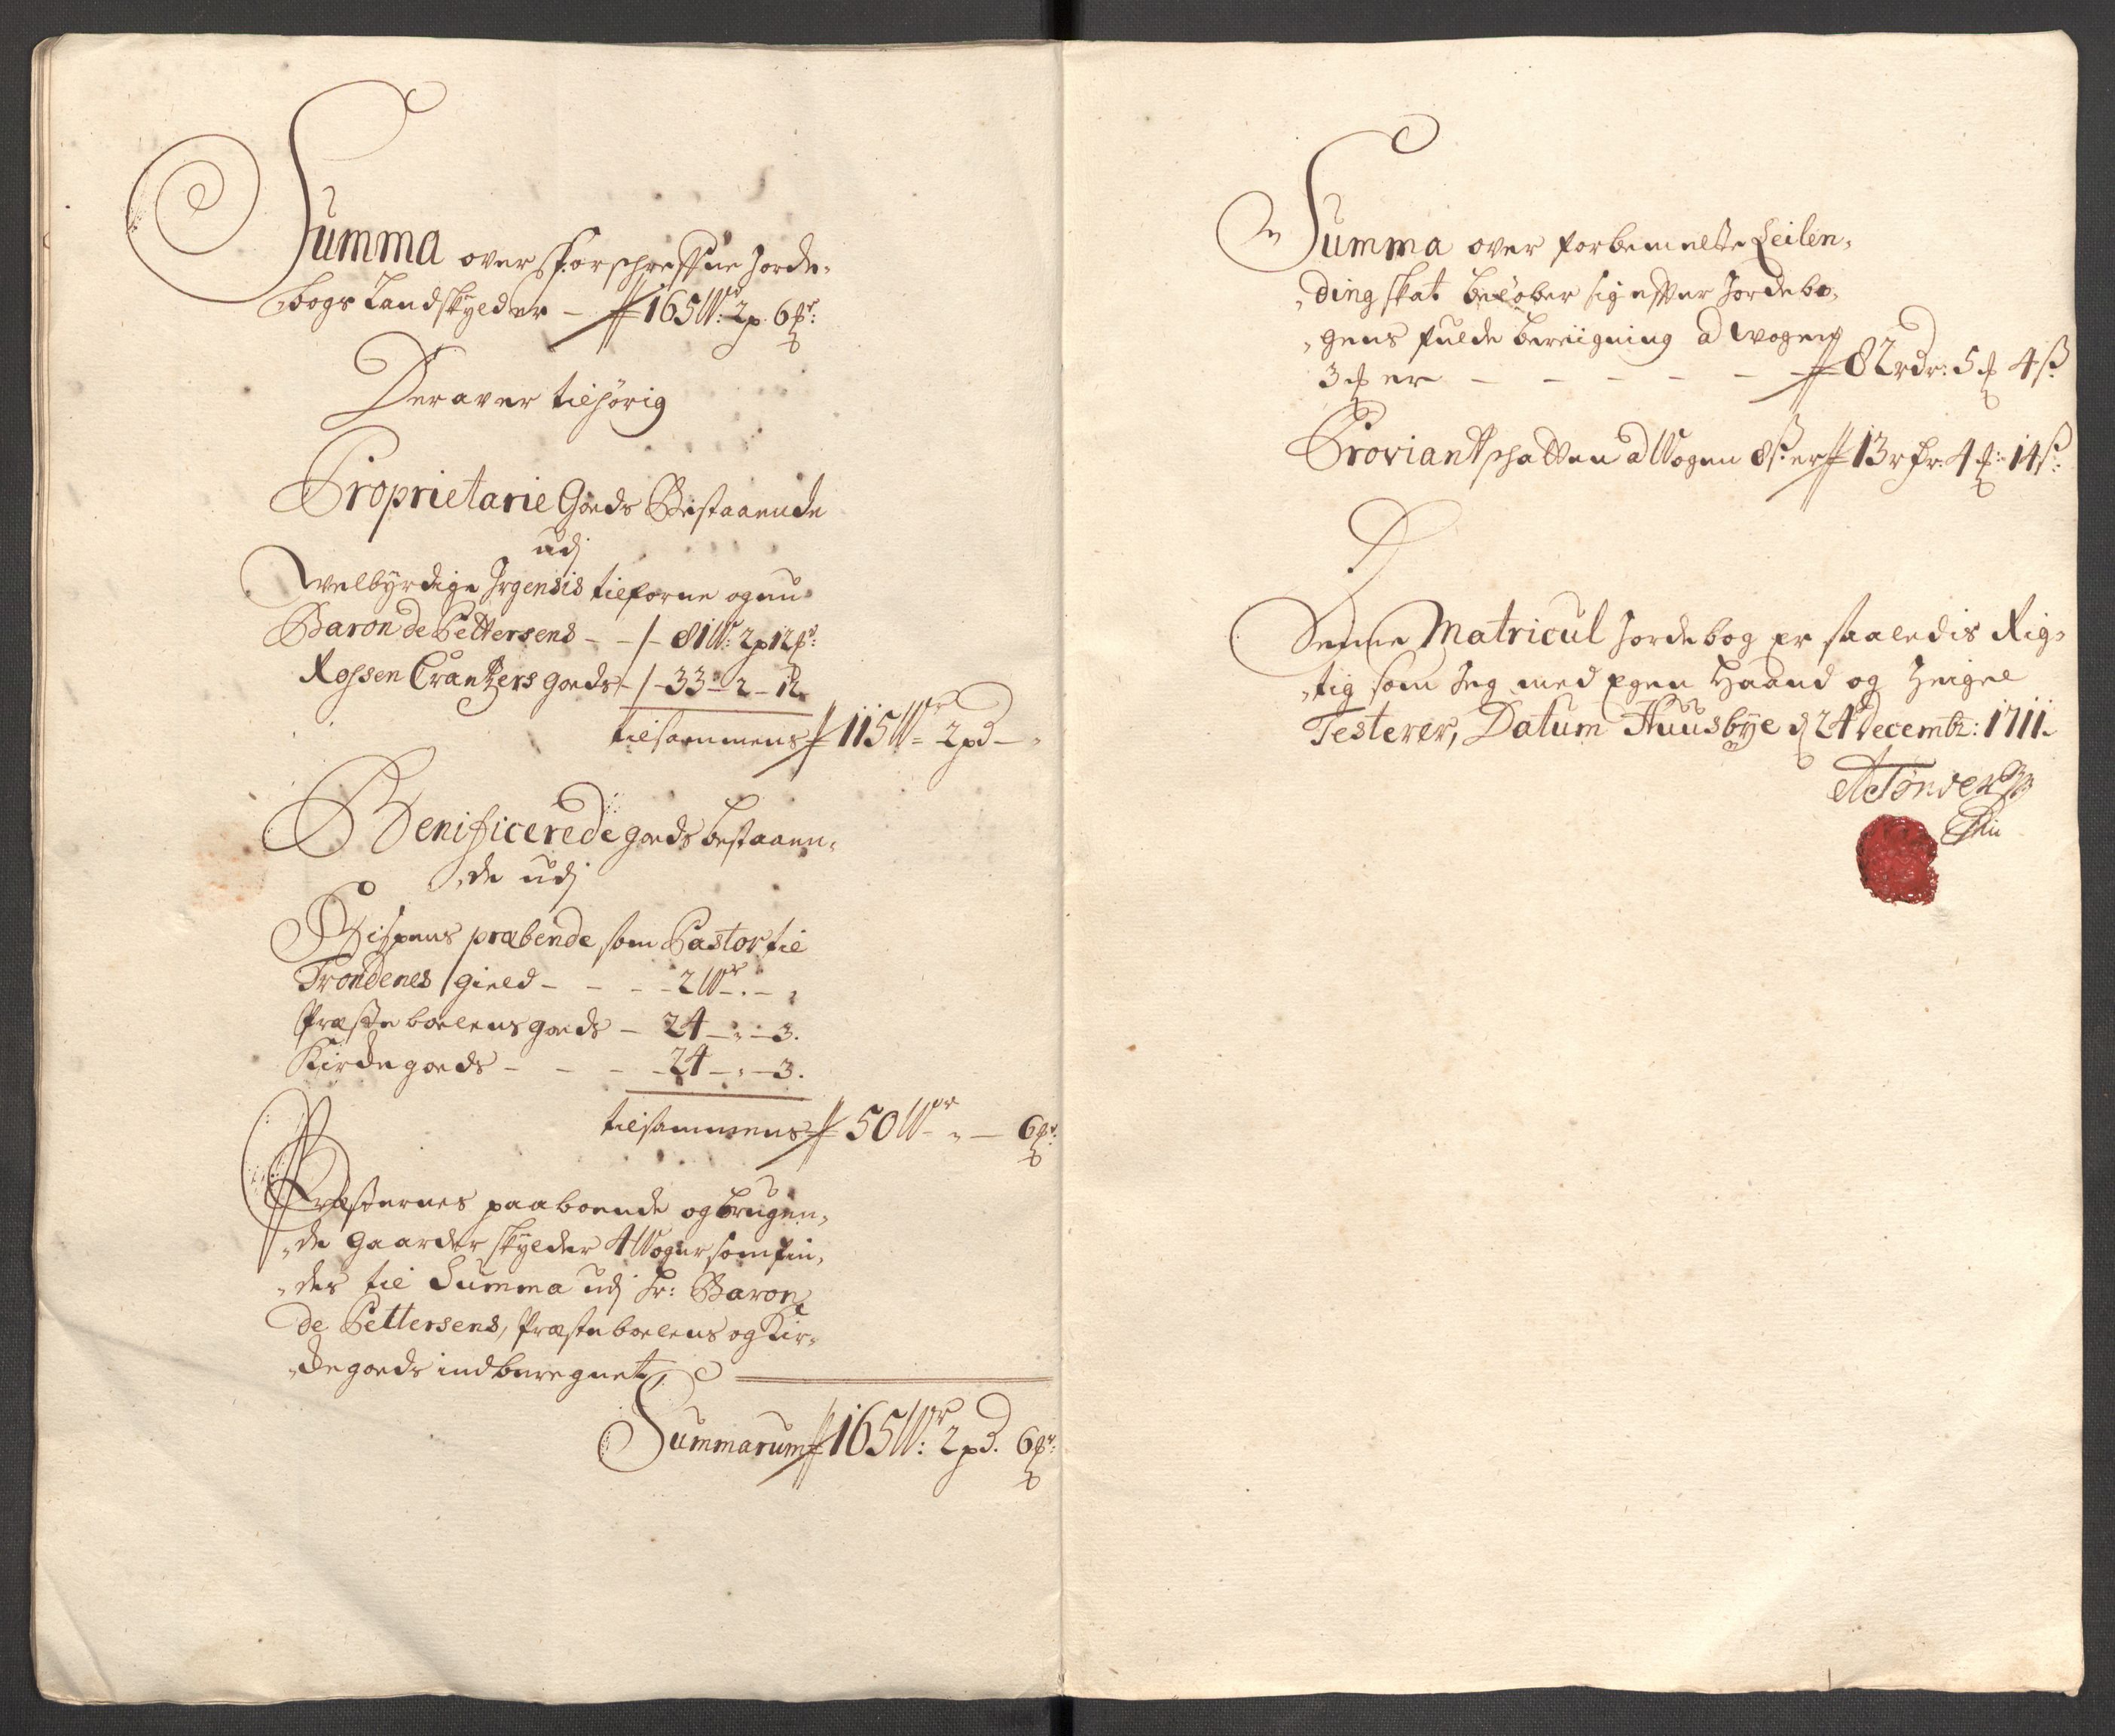 Summa over Forschreffne Jorde-
bogs Landskylder - 165 W: 2 p 6 ℔r:
Deraver tilhörig
Proprietarie Goeds Bestaaende
udj
Welbÿrdige Jrgensis tilforne og nu
Baron de Pettersens - /- 81 W: 2 p 12 ℔r:
Rossen Crantzers goeds - /- 33 - 2 - 12
tilsammens 115 Wr - 2 pd -
Benificerede goeds bestaaen-
de udj
Bispens præbende som Pastor til
Trondenes gield - - - - 2 Wr - . - ,
Præste boelens goeds - 24 - " - 3.
Kirche goeds - - - - 24 - " - 3.
tilsammens 50 Wr - " - 6 ℔r:
Præsternes paaboende og brugen-
de gaarder skylder 4 Woger som fin-
des til Summa udj hr: Baron
de Pettersens, Præste boelens og Kir-
che goeds indberegnet
Summarum 165 Wr: 2 pd. 6 ℔r:
Summa over forbemelte Leilen-
ding skat beløber sig effter Jordebo-
gens fulde beriigning a Wogen
3 ℔ er - - - - - - 82 rdr: 5 ℔ 4 ß
Proviant schatten a Wogen 8 ß er 13 rdr: 4 ℔: 14 ß:
Denne Matricul Jordebog er saaledis Rig-
tig som Jeg med Egen Haand og Zeigel
Testerer, Datum Huusbÿe d 24 decembr: 1711.
A Tønder